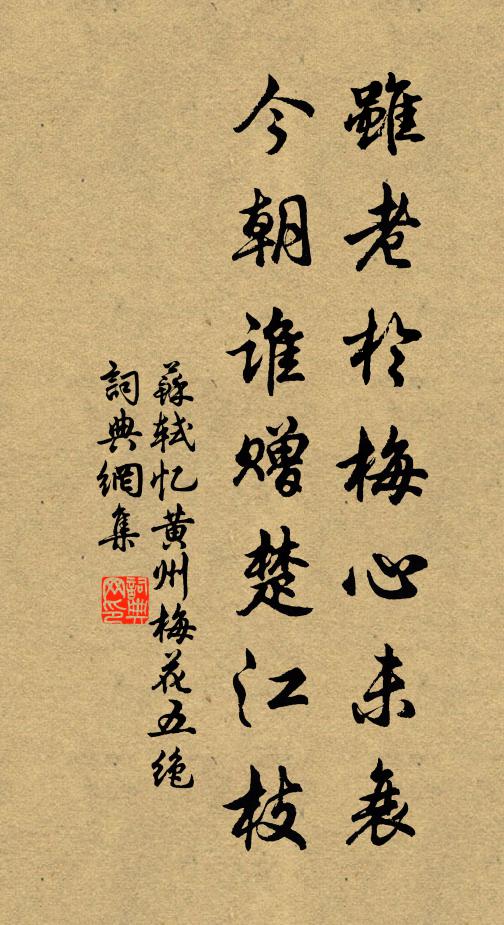 雖老於梅心未衰
今朝谁赠楚江枝
蘇轼忆黄州梅花五绝
詞典網集
詞典网印